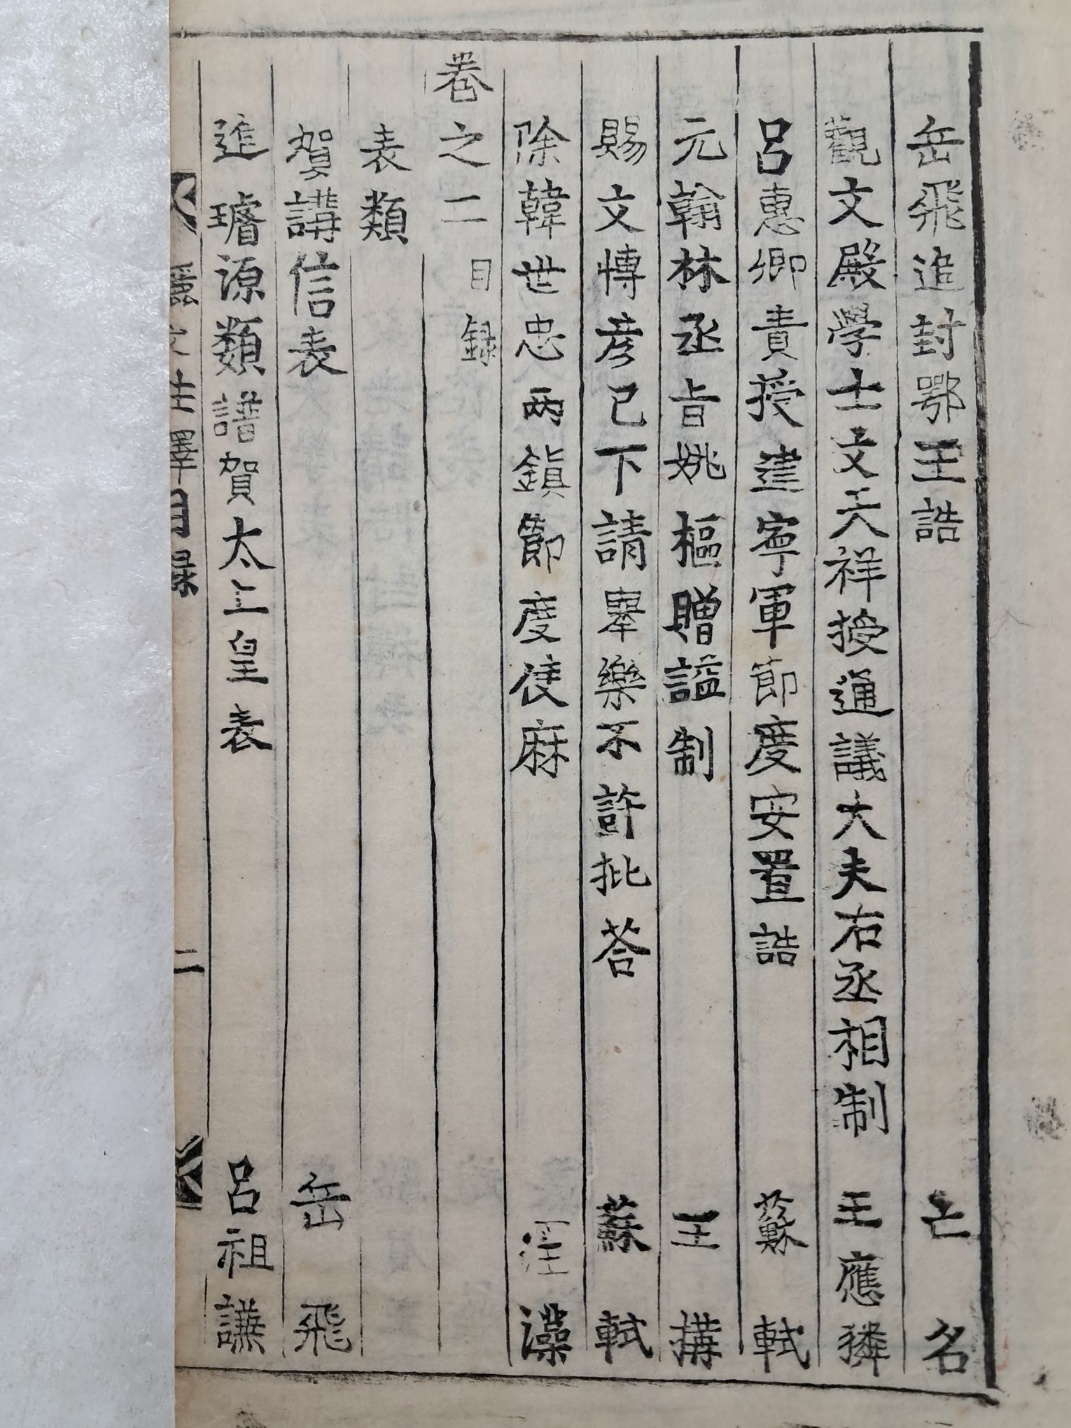 岳飛追封鄂王誥 亡名
觀文殿學士文天祥授通議大夫右丞相制 王應獜
呂惠卿責授建寧軍節度安置誥 蘇軾
元翰林丞旨姚樞贈謚制 王搆
賜文博彦已下請舉樂不許批荅 蘇軾
除韓世忠兩鎭節度使麻 汪藻
卷之二目録
表類
賀講信表 岳飛
進璿源類譜賀太上皇表 呂祖謙
目録 二